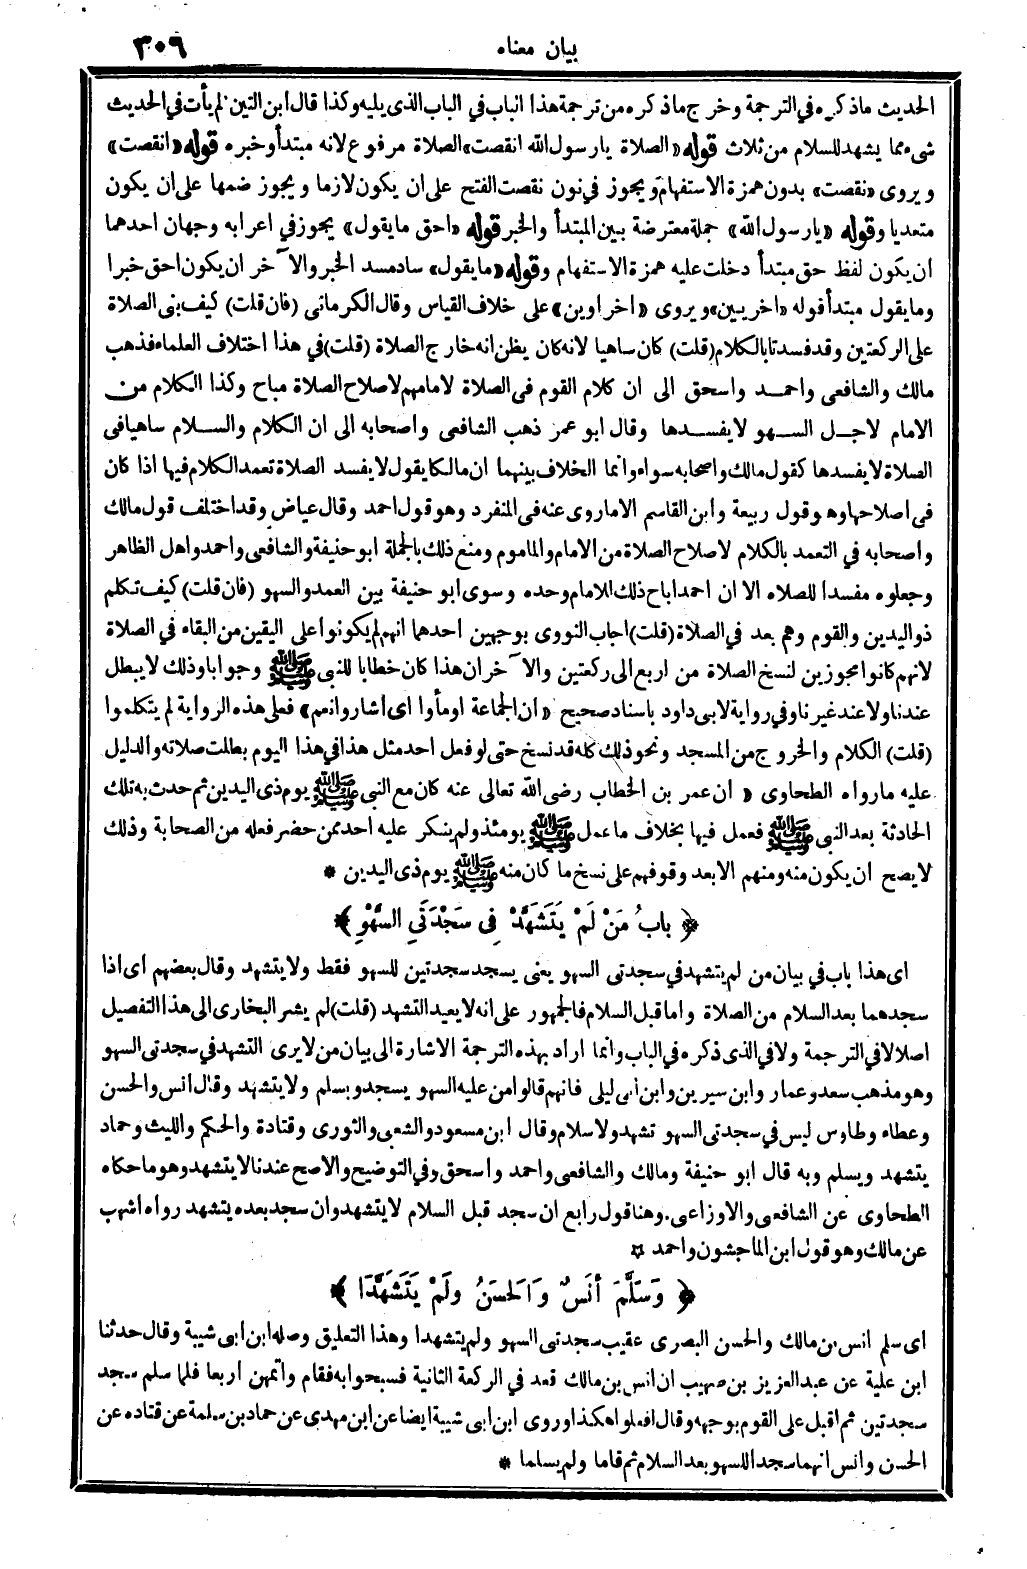 بيان معناه
٣٠٩
الحديث ماذكره في الترجمة وخرج ماذكره من ترجمة هذا الباب في الباب الذى يليه وكذا قال ابن التين لم يأت في الحديث
شىء مما يشهد للسلام من ثلاث قوله «الصلاة يارسول الله انقصت» الصلاة مرفوع لانه مبتدأ وخبره قوله «انقصت»
ويروى «نقصت» بدون همزة الاستفهام ويجوز في نون نقصت الفتح على ان يكون لازما ويجوز ضمها على ان يكون
متعديا وقوله «يارسول الله» جملة معترضة بين المبتدأ والخبر قوله «احق مايقول» يجوز في اعرابه وجهان احدهما
ان يكون لفظ حق مبتدأ دخلت عليه همزة الاستفهام وقوله «مايقول» ساد مسد الخبر والآخر ان يكون احق خبرا
ومايقول مبتدأ قوله «اخريين» ويروى «اخراوين» على خلاف القياس وقال الكرمانى (فان قلت) كيف بنى الصلاة
على الركعتين وقد فسدتا بالكلام (قلت) كان ساهيا لانه كان يظن انه خارج الصلاة (قلت) في هذا اختلاف العلماء فذهب
مالك والشافعى واحمد واسحق الى ان كلام القوم فى الصلاة لامامهم لاصلاح الصلاة مباح وكذا الكلام من
الامام لاجل السهو لايفسدها وقال ابو عمر ذهب الشافعى واصحابه الى ان الكلام والسلام ساهيا فى
الصلاة لايفسدها كقول مالك واصحابه سواء وانما الخلاف بينهما ان مالكا يقول لا يفسد الصلاة تعمد الكلام فيها اذا كان
فى اصلاحها وهو قول ربيعة وابن القاسم الاماروى عنه فى المنفرد وهو قول احمد وقال عياض وقد اختلف قول مالك
واصحابه في التعمد بالكلام لاصلاح الصلاة من الامام والماموم ومنع ذلك بالجملة ابو حنيفة والشافعى واحمد واهل الظاهر
وجعلوه مفسدا للصلاه الا ان احمد اباح ذلك للامام وحده وسوى ابو حنيفة بين العمد والسهو (فان قلت) كيف تكلم
ذو اليدين والقوم وهم بعد في الصلاة (قلت) اجاب النووى بوجهين احدهما انهم لم يكونوا على اليقين من البقاء في الصلاة
لانهم كانوا مجوزين لنسخ الصلاة من اربع الى ركعتين والآخر ان هذا كان خطابا للنبى ﷺ وجوابا وذلك لا يبطل
عندنا ولا عند غيرنا وفي رواية لابى داود باسناد صحيح «ان الجماعة اومأوا اى اشاروا نعم» فعلى هذه الرواية لم يتكلموا
(قلت) الكلام والخروج من المسجد ونحو ذلك كله قد نسخ حتى لو فعل احد مثل هذا في هذا اليوم بطلت صلاته والدليل
عليه مارواه الطحاوى « ان عمر بن الخطاب رضى الله تعالى عنه كان مع النبى ﷺ يوم ذى اليدين ثم حدث به تلك
الحادثة بعد النبى ﷺ فعمل فيها بخلاف ما عمل ﷺ يومئذ ولم ينكر عليه احد ممن حضر فعله من الصحابة وذلك
لا يصح ان يكون منه ومنهم الا بعد وقوفهم على نسخ ما كان منه ﷺ يوم ذى اليدين *
﴿ بابُ مَنْ لَمْ يَتَشَهَّدْ فِى سَجْدَتَيِ السَّهْوِ ﴾
اى هذا باب في بيان من لم يتشهد في سجدتى السهو يعنى يسجد سجدتين للسهو فقط ولا يتشهد وقال بعضهم اى اذا
سجدهما بعد السلام من الصلاة واما قبل السلام فالجمهور على انه لا يعيد التشهد (قلت) لم يشر البخارى الى هذا التفصيل
اصلا لا في الترجمة ولا في الذى ذكره في الباب وانما اراد بهذه الترجمة الاشارة الى بيان من لا يرى التشهد في سجدتى السهو
وهو مذهب سعد وعمار وابن سيرين وابن ابى ليلى فانهم قالوا من عليه السهو يسجد ويسلم ولا يتشهد وقال انس والحسن
وعطاء وطاوس ليس في سجدتى السهو تشهد ولا سلام وقال ابن مسعود والشعبى والثورى وقتادة والحكم والليث وحماد
يتشهد ويسلم وبه قال ابو حنيفة ومالك والشافعى واحمد واسحق وفي التوضيح والاصح عندنا لا يتشهد وهو ما حكاه
الطحاوى عن الشافعى والاوزاعى. وهنا قول رابع ان سجد قبل السلام لا يتشهد وان سجد بعده يتشهد رواه اشهب
عن مالك وهو قول ابن الماجشون واحمد *
﴿ وَسَلَّمَ أنَسٌ وَالحَسَنُ ولَمْ يَتَشَهَّدَا ﴾
اى سلم انس بن مالك والحسن البصرى عقيب سجدتى السهو ولم يتشهدا وهذا التعليق وصله ابن ابى شيبة وقال حدثنا
ابن علية عن عبد العزيز بن صهيب ان انس بن مالك قعد في الركعة الثانية فسبحوا به فقام واتمهن اربعا فلما سلم سجد
سجدتين ثم اقبل على القوم بوجهه وقال افعلوا هكذا وروى ابن ابى شيبة ايضا عن ابن مهدى عن حماد بن سلمة عن قتاده عن
الحسن وانس انهما سجدا للسهو بعد السلام ثم قاما ولم يسلما *